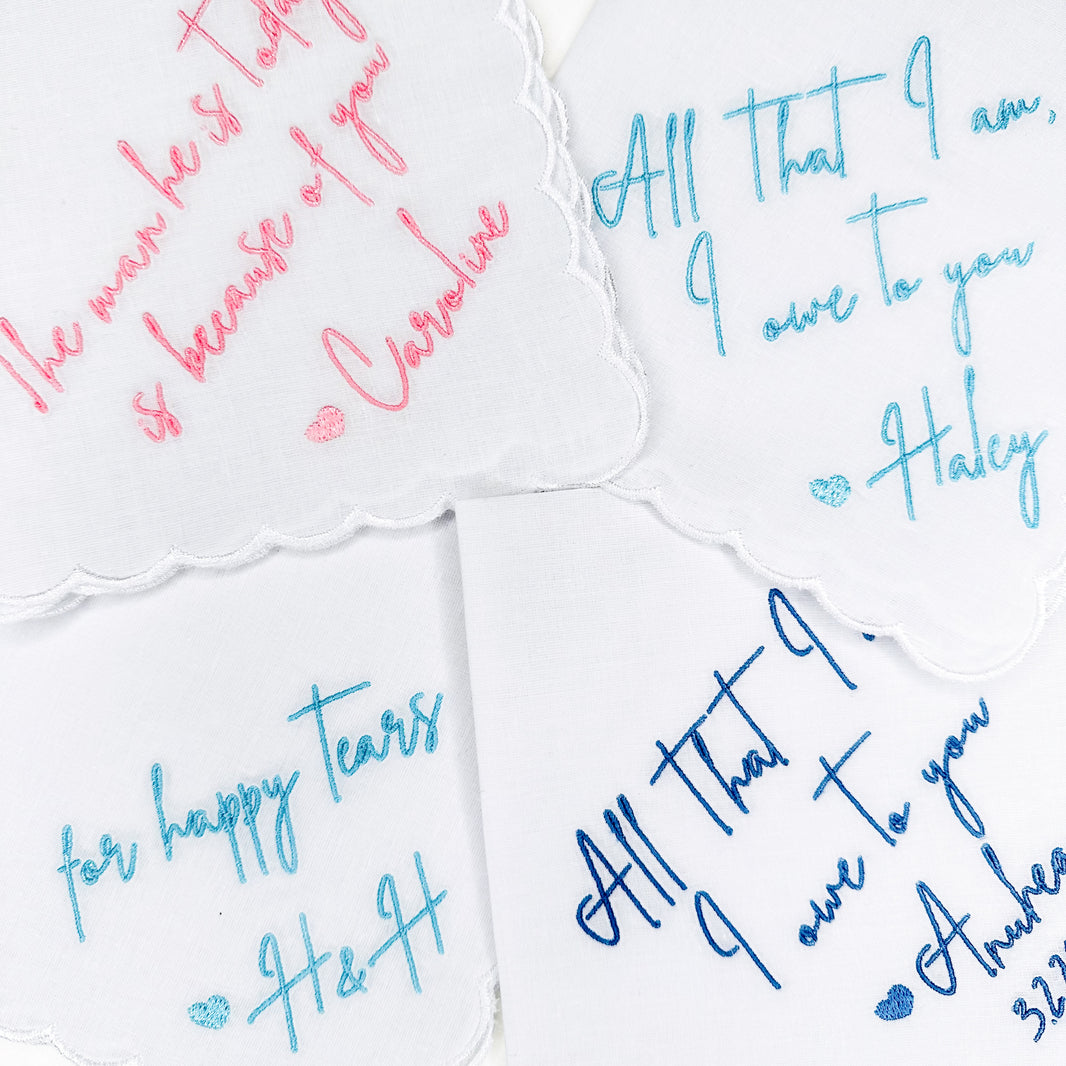 The man he is today
is because of you
Caroline
All that I am,
I owe to you
Haley
for happy tears
H & H
All that I
I owe to you